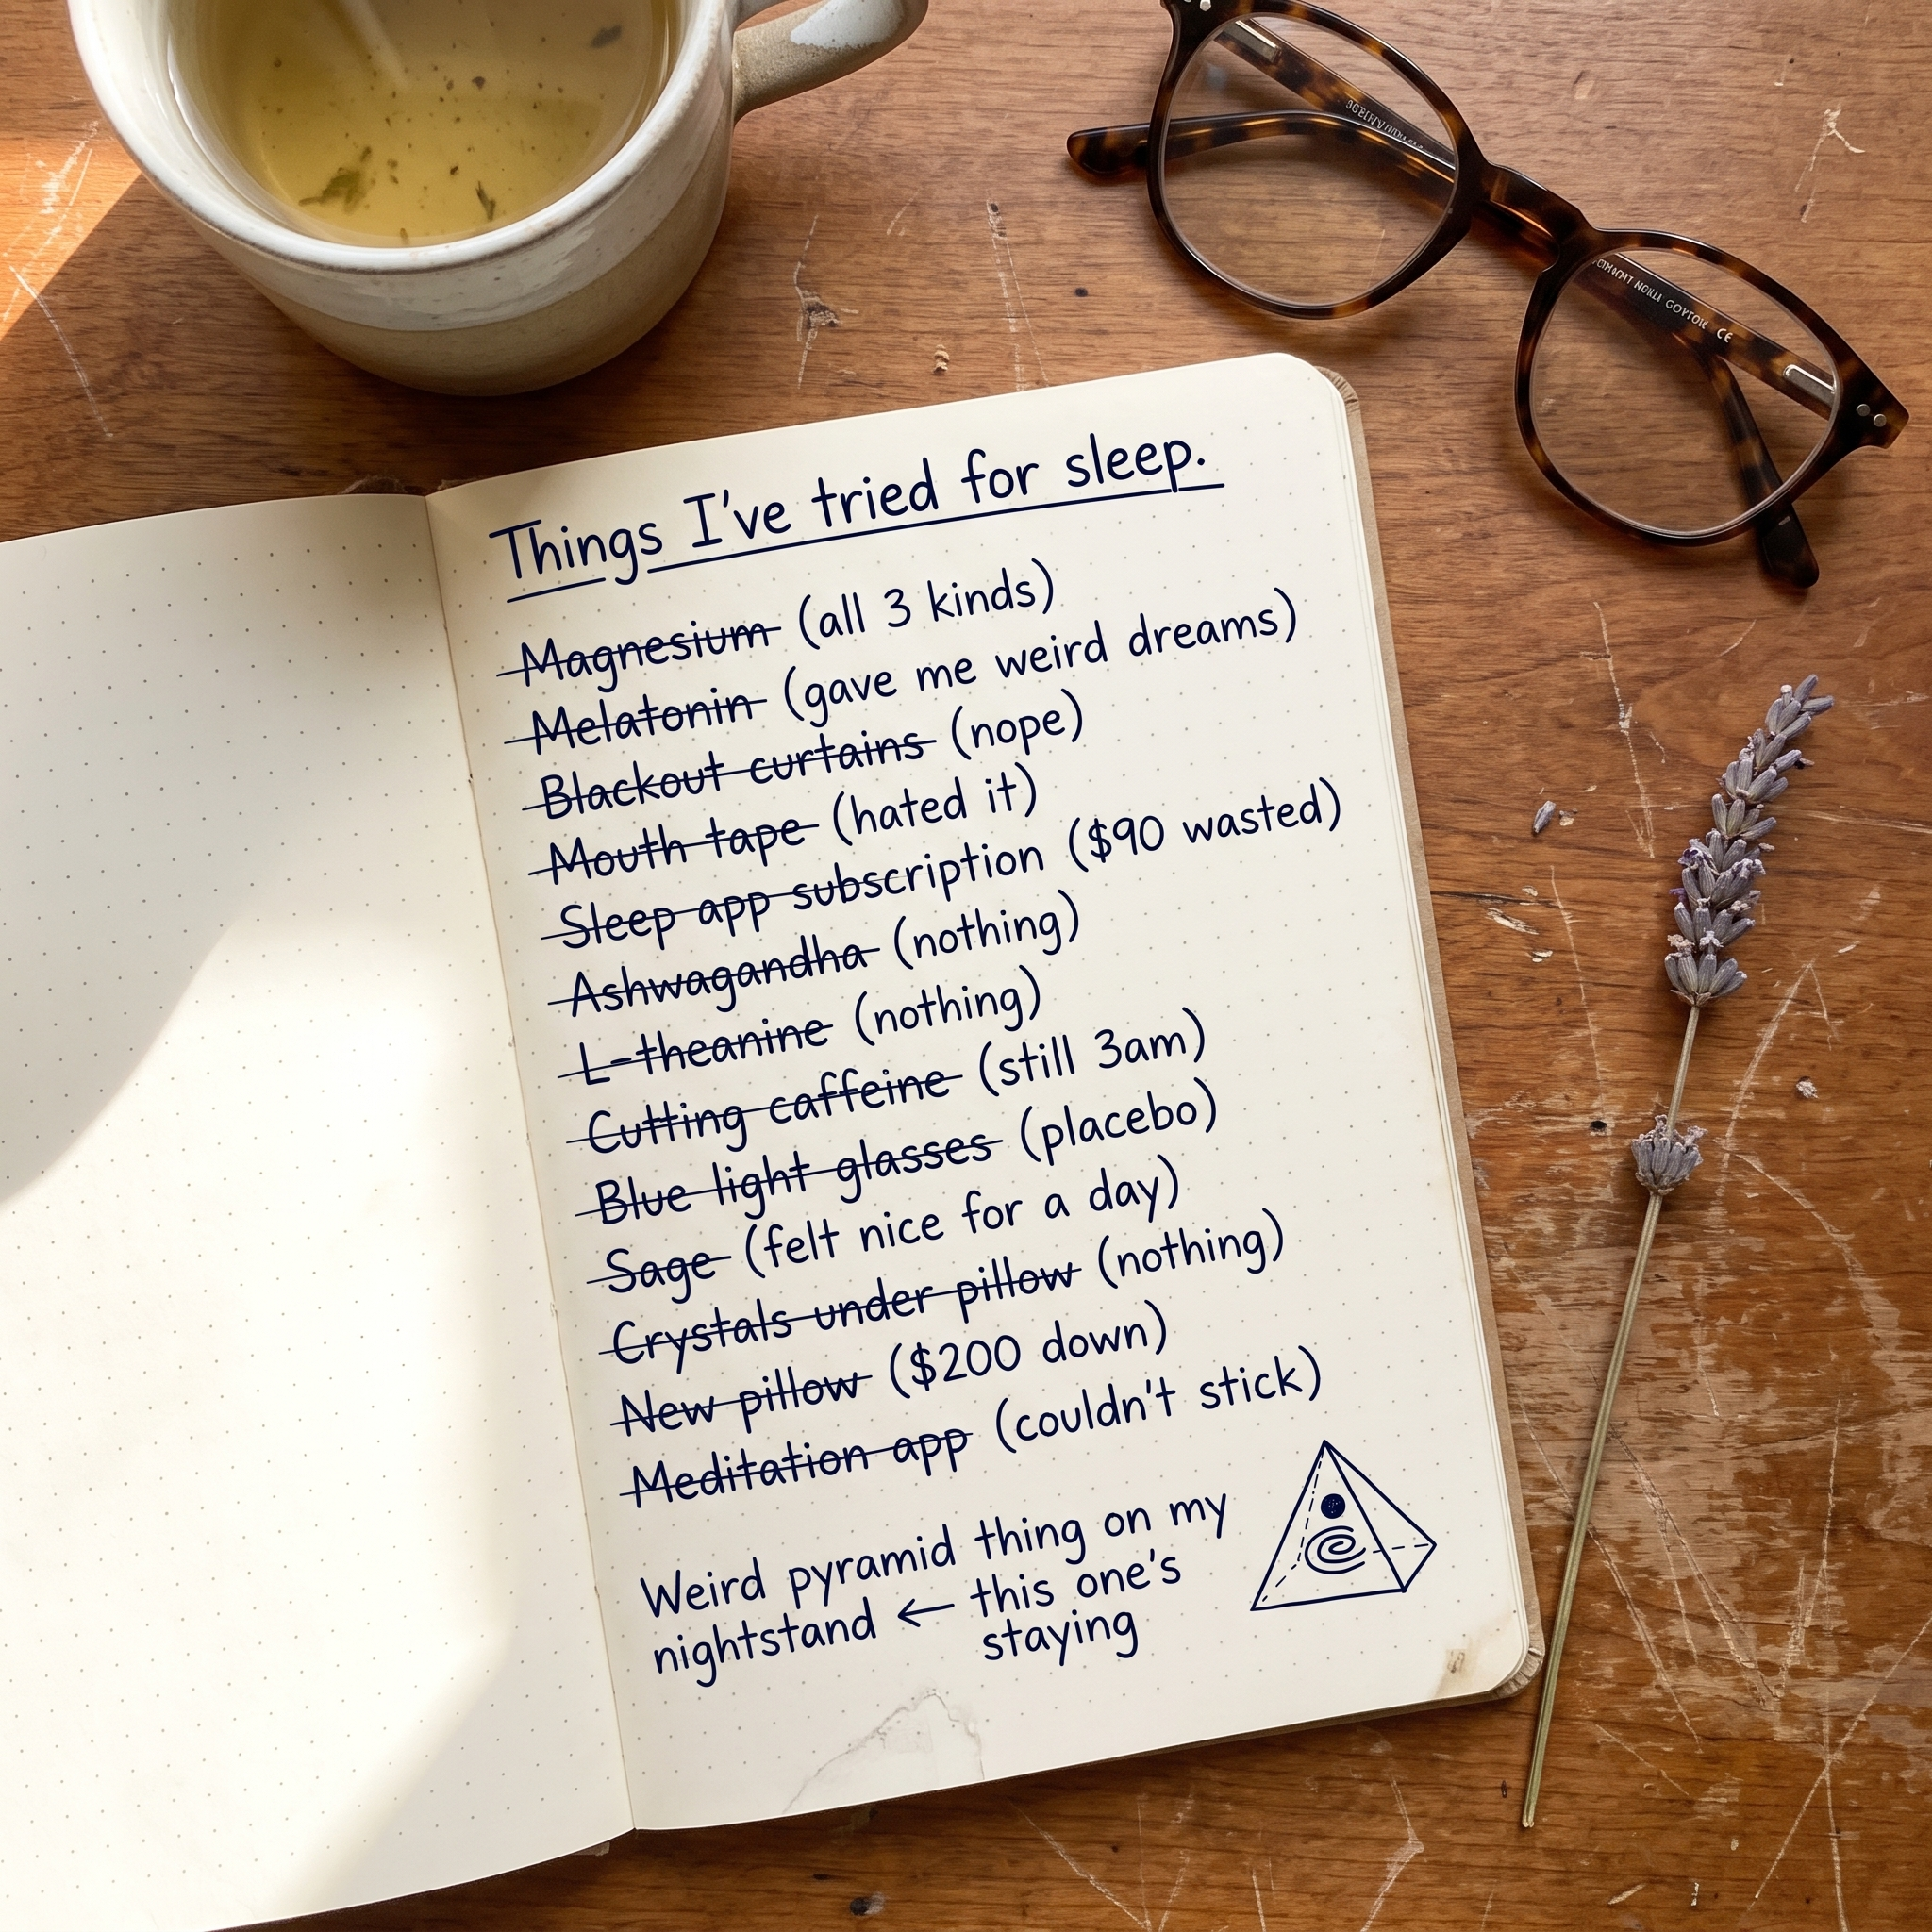 Things I've tried for sleep.
Magnesium (all 3 kinds)
Melatonin (gave me weird dreams)
Blackout curtains (nope)
Mouth tape (hated it)
Sleep app subscription ($90 wasted)
Ashwagandha (nothing)
L-theanine (nothing)
Cutting caffeine (still 3am)
Blue light glasses (placebo)
Sage (felt nice for a day)
Crystals under pillow (nothing)
New pillow ($200 down)
Meditation app (couldn't stick)
Weird pyramid thing on my
nightstand ← this one's
staying
CE